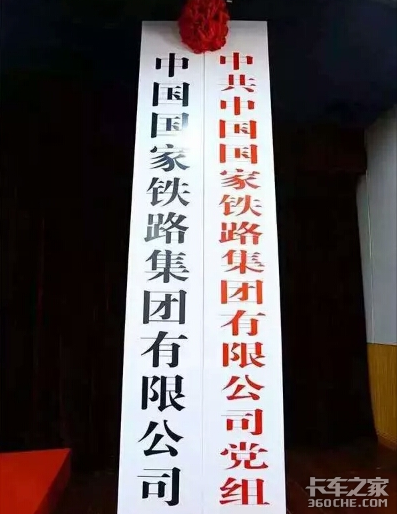 中共中国国家铁路集团有限公司党组
中国国家铁路集团有限公司
卡车之家
360CHE.COM